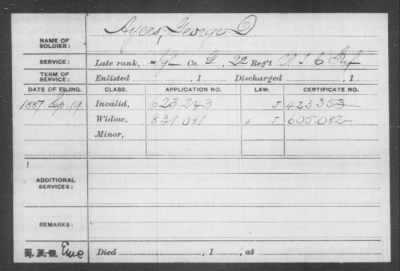 NAME OF SOLDIER: Ayers, George D
SERVICE: Late rank, Co. G, 22 Reg't U S C Inf
TERM OF SERVICE: Enlisted , 1 Discharged , 1
DATE OF FILING. CLASS. APPLICATION NO. LAW. CERTIFICATE NO.
1887 Sep. 19 Invalid, 623243 J 423353
Widow, 831081 J 605082
Minor,
ADDITIONAL SERVICES:
REMARKS:
Died , 1 , at